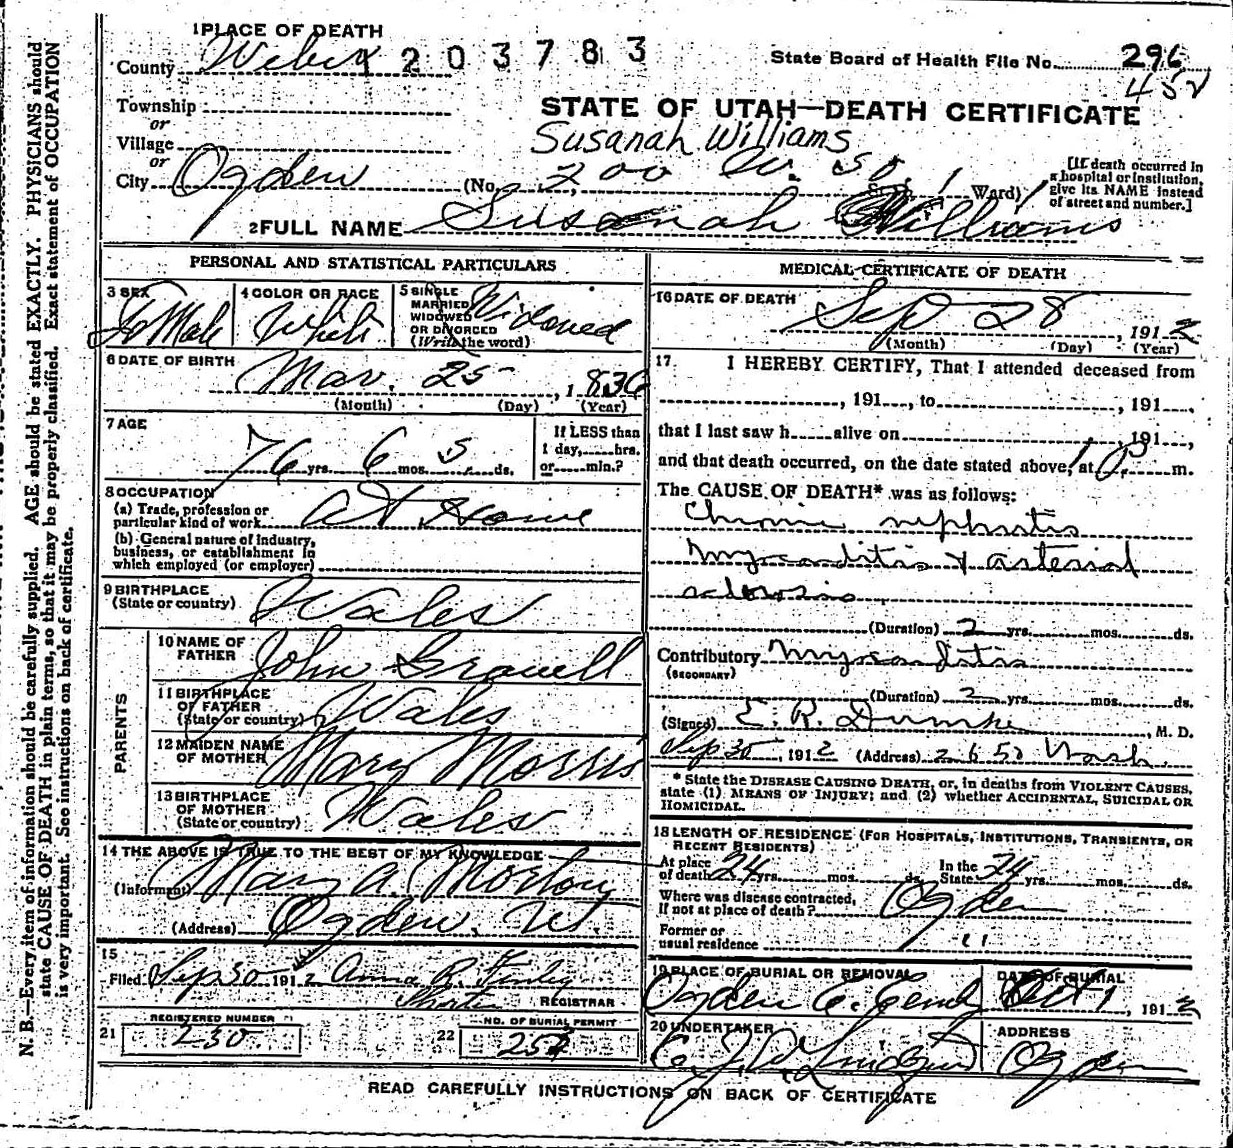 1 PLACE OF DEATH
County Weber 203783
State Board of Health File No. 296
452
Township
or
Village
or
City Ogden
STATE OF UTAH—DEATH CERTIFICATE
Susanah Williams
(No. 200 W. So. St.; 1 Ward)
[If death occurred in
a hospital or institution,
give its NAME instead
of street and number.]
2 FULL NAME Susanah Williams
PERSONAL AND STATISTICAL PARTICULARS
3 SEX FeMale
4 COLOR OR RACE White
5 SINGLE
MARRIED
WIDOWED
OR DIVORCED
(Write the word)
Widowed
6 DATE OF BIRTH
Mar. 25, 1836
(Month) (Day) (Year)
7 AGE
76 yrs. 6 mos. 5 ds.
If LESS than
1 day, hrs.
or min.?
8 OCCUPATION
(a) Trade, profession or
particular kind of work At Home
(b) General nature of industry,
business, or establishment in
which employed (or employer)
9 BIRTHPLACE
(State or country) Wales
PARENTS
10 NAME OF
FATHER John Gravell
11 BIRTHPLACE
OF FATHER
(State or country) Wales
12 MAIDEN NAME
OF MOTHER Mary Morris
13 BIRTHPLACE
OF MOTHER
(State or country) Wales
14 THE ABOVE IS TRUE TO THE BEST OF MY KNOWLEDGE
(Informant) Mary A.
(Address) Ogden. Ut.
15
Filed Sep 30 1912 Anna R.
REGISTRAR
21 REGISTERED NUMBER
230
22 NO. OF BURIAL PERMIT
MEDICAL CERTIFICATE OF DEATH
16 DATE OF DEATH
Sep 28, 1912
(Month) (Day) (Year)
17 I HEREBY CERTIFY, That I attended deceased from
, 191 , to , 191 ,
that I last saw h alive on , 191 ,
and that death occurred, on the date stated above, at m.
The CAUSE OF DEATH* was as follows:
Chronic nephritis
myocarditis & arterial
sclerosis
(Duration) 2 yrs. mos. ds.
Contributory Myocarditis
(SECONDARY)
(Duration) 2 yrs. mos. ds.
(Signed) E. R. Dumke, M. D.
Sep 30, 1912 (Address) 2650 Wash.
* State the DISEASE CAUSING DEATH, or, in deaths from VIOLENT CAUSES,
state (1) MEANS OF INJURY; and (2) whether ACCIDENTAL, SUICIDAL OR
HOMICIDAL.
18 LENGTH OF RESIDENCE (FOR HOSPITALS, INSTITUTIONS, TRANSIENTS, OR
RECENT RESIDENTS)
At place
of death 24 yrs. mos. ds.
In the
State 24 yrs. mos. ds.
Where was disease contracted,
if not at place of death? Ogden
Former or
usual residence "
19 PLACE OF BURIAL OR REMOVAL
Ogden C. Cem
DATE OF BURIAL
Oct 1, 1912
20 UNDERTAKER
ADDRESS
Ogden
READ CAREFULLY INSTRUCTIONS ON BACK OF CERTIFICATE
N. B.—Every item of information should be carefully supplied. AGE should be stated EXACTLY. PHYSICIANS should
state CAUSE OF DEATH in plain terms, so that it may be properly classified. Exact statement of OCCUPATION
is very important. See instructions on back of certificate.